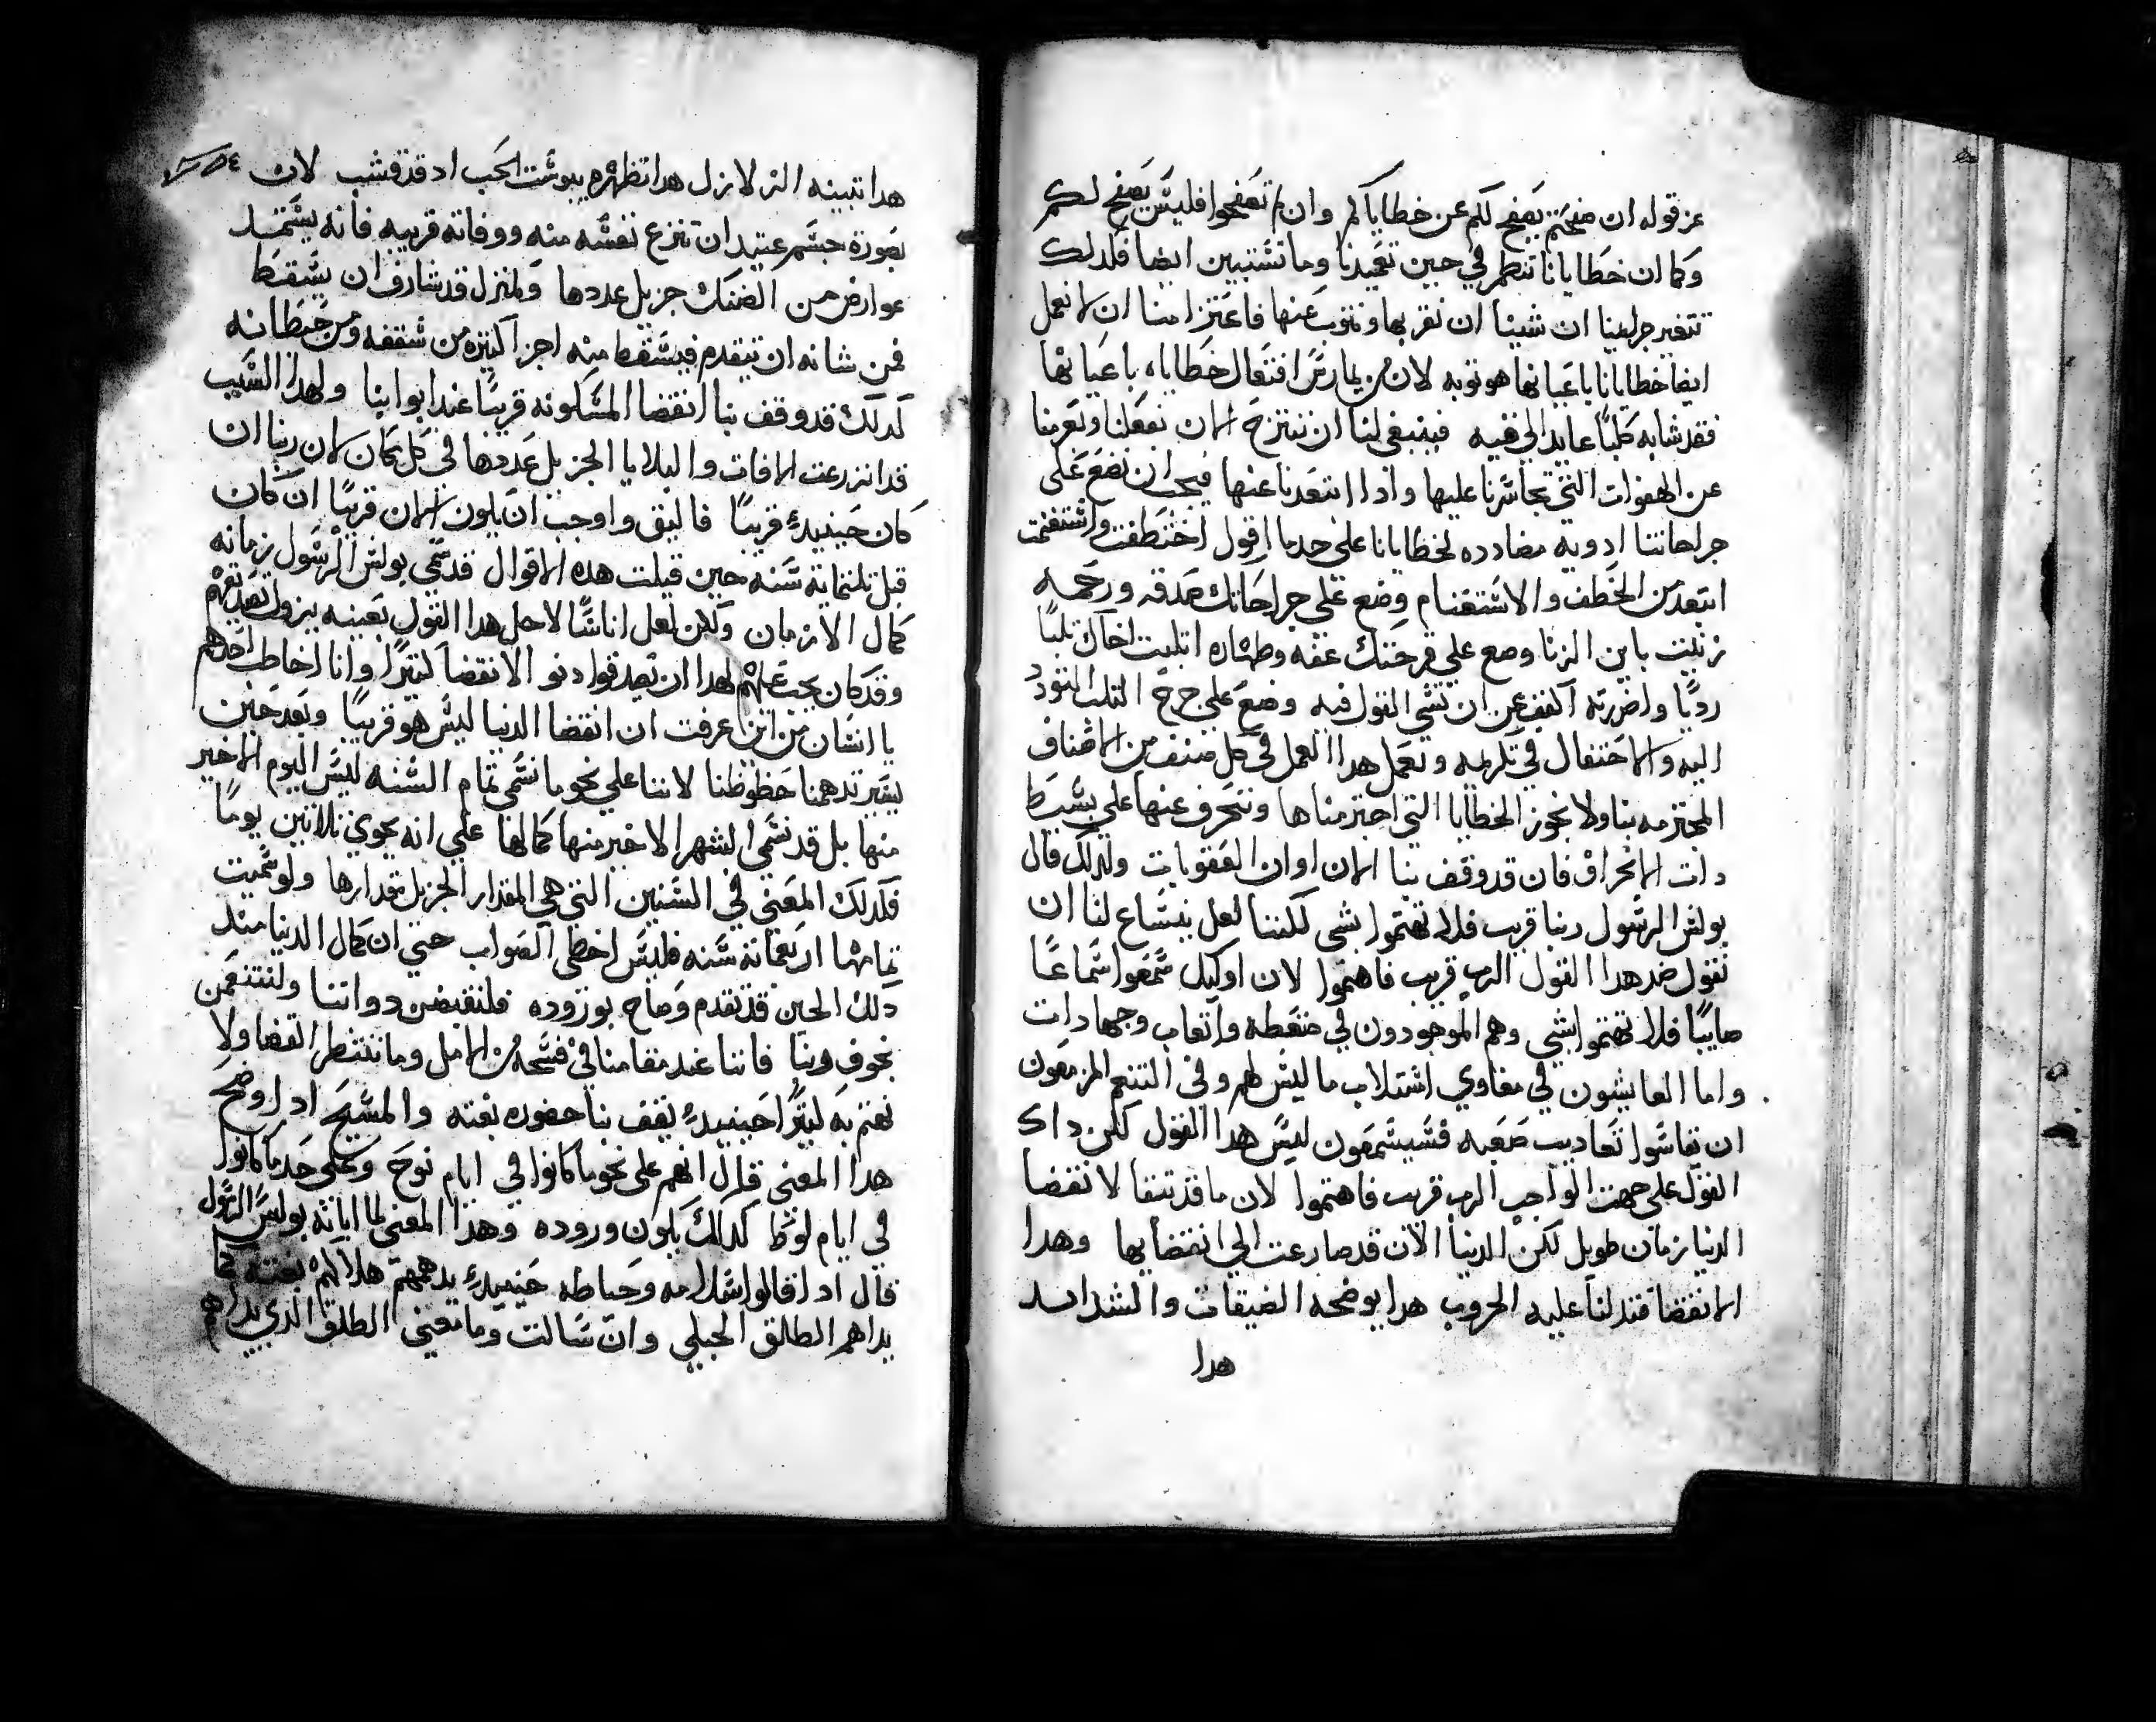 عن قوله ان صفحتم يصفح لكم عن خطاياكم وان لم تصفحوا فليس يصفح لكم
وكما ان خطايانا تنطمر في حين تعميدنا وما تستبين ايضا فلدلك
تتغير جرايمنا ان شينا ان نقر بها ونتوب عنها فاعتزامنا ان لا نعمل
ايضا خطايانا باعيانها هو توبه لان من يمارس افتعال خطاياه باعيانها
فقد شابه كلبًا عايد الى قييه فينبغي لنا ان ننتزح الان نفعلنا وتعزمنا
عن الهفوات التي تجاسرنا عليها وادا ابتعدنا عنها فيجب ان نضع على
جراحاتنا ادويه مضادده لخطايانا على حد ما اقول اختطفت واستغنمت
ابتعد من الخطف والاستغنام وضع على جراحاتك صدقه ورحمه
زنيت باين الزنا وضع علي قرحتك عفه وطهاره اتلبت اخاك تلبًا
رديًا واضررته اكفف عن ان تسي القول فيه وضع علي جرح التلب التودد
اليه والاحتفال في تكرمه ونعمل هدا العمل في كل صنف من الاصناف
المجترمه بنا ولا نجوز الخطايا التي اجترمناها وننحرف عنها على بسيط
دات الانحراف فان قد وقف بنا الان اوان العقوبات ولدلك قال
بولس الرسول ربنا قريب فلا تهتموا بشي لكننا لعل ينساع لنا ان
نقول ضد هدا القول الرب قريب فاهتموا لان اوليك سمعوا سماعًا
صايبًا فلا تهتموا بشي وهم الموجودون في ضغطه واتعاب وجهادات
واما العايشون في مغاوي استلاب ما ليس لهم وفي التنعم المزمعون
ان يقاسوا تعاديب صعبه فسيسمعون ليس هدا القول لكن داك
القول على جهت الواجب الرب قريب فاهتموا لان ما قد تبقا لانقضا
الدنيا زمان طويل لكن الدنيا الان قد صارعت الى انقضايها وهدا
الانقضا فتدلنا عليه الحروب هدا يوضحه الضيقات والشدايد
هدا
هدا تبينه الزلازل هدا تظهره يبوست الحب اد قد قشب لان
بصورة جسم عتيد ان تنزع نفسه منه ووفاته قريبه فانه يشتمل
عوارض من الضنك جزيل عددها ولمنزل قد شارف ان يسقط
فمن شانه ان تتقدم فيسقط منه اجزا كتيره من سقفه ومن حيطانه
كدلك قد وقف بنا انقضا المسكونه قريبًا عند ابوابنا ولهدا السبب
قد انزرعت الافات والبلايا الجزيل عددها في كل مكان لان ربنا ان
كان حينيدٍ قريبًا فاليق واوجب ان يكون الان قريبًا ان كان
قبل تلتماية سنه حين قيلت هده الاقوال قد سمي بولس الرسول زمانه
كمال الازمان ولكن لعل اناسًا لاجل هدا القول بعينه يزول تصديقهم
وقد كان يجب عليهم لهدا ان يصدقوا دنو الانقضا كتيرًا وانا اخاطب احدهم
يا انسان من اين عرفت ان انقضا الدنيا ليس هو قريبًا وبعد حين
يسير تدهمنا حظوظنا لاننا على نحو ما نسمي تمام السنه ليس اليوم الاخير
منها بل قد نسمي الشهر الاخير منها كمالها على انه يحوي تلاتين يومًا
فكدلك المعني في السنين التي هي المقدار الجزيل مقدارها ولو سميت
تمامها اربعماية سنه فليس اخطى الصواب حتي ان كمال الدنيا مند
دلك الحين قد تقدم وصاح بوروده فلنقبض دواتنا ولنتنعمن
بخوف ربنا فاننا عند مقامنا في فسحه من الامل وما ننتظر القضا ولا
نهتم به كتيرًا حينيدٍ يقف بنا حضوره بغته والمسيح اد اوضح
هدا المعنى قال انهم على نحو ما كانوا في ايام نوح وعلى حد ما كانوا
في ايام لوط كدلك يكون وروده وهدا المعنى لما ابانه بولس الرسول
قال ادا قالوا سلامه وحياطه حينيدٍ يدهمهم هلاكهم بغته كما
يداهم الطالق الحبلى وان سالت وما معني الطلق الدي يداهم